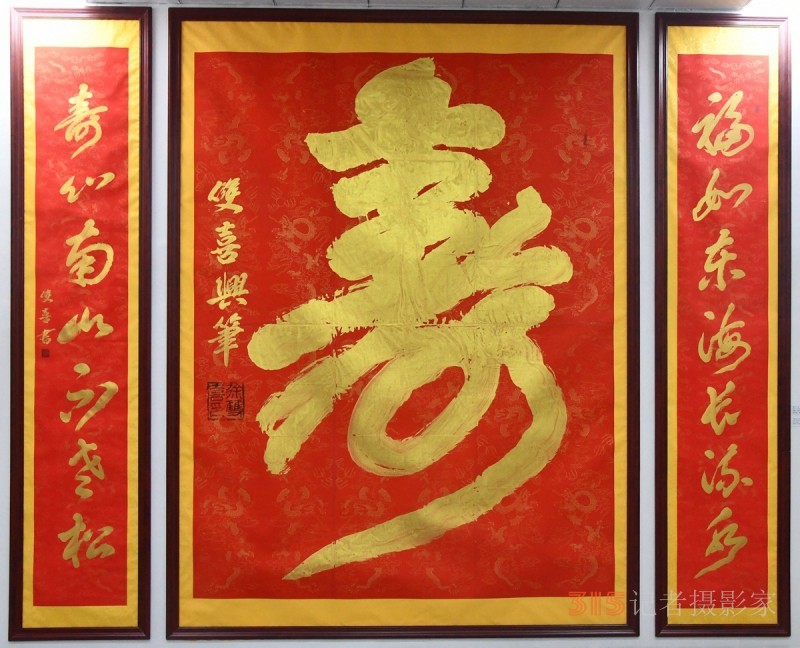 福如东海长流水
寿
雙喜興筆
寿比南山不老松
雙喜书
315记者摄影家